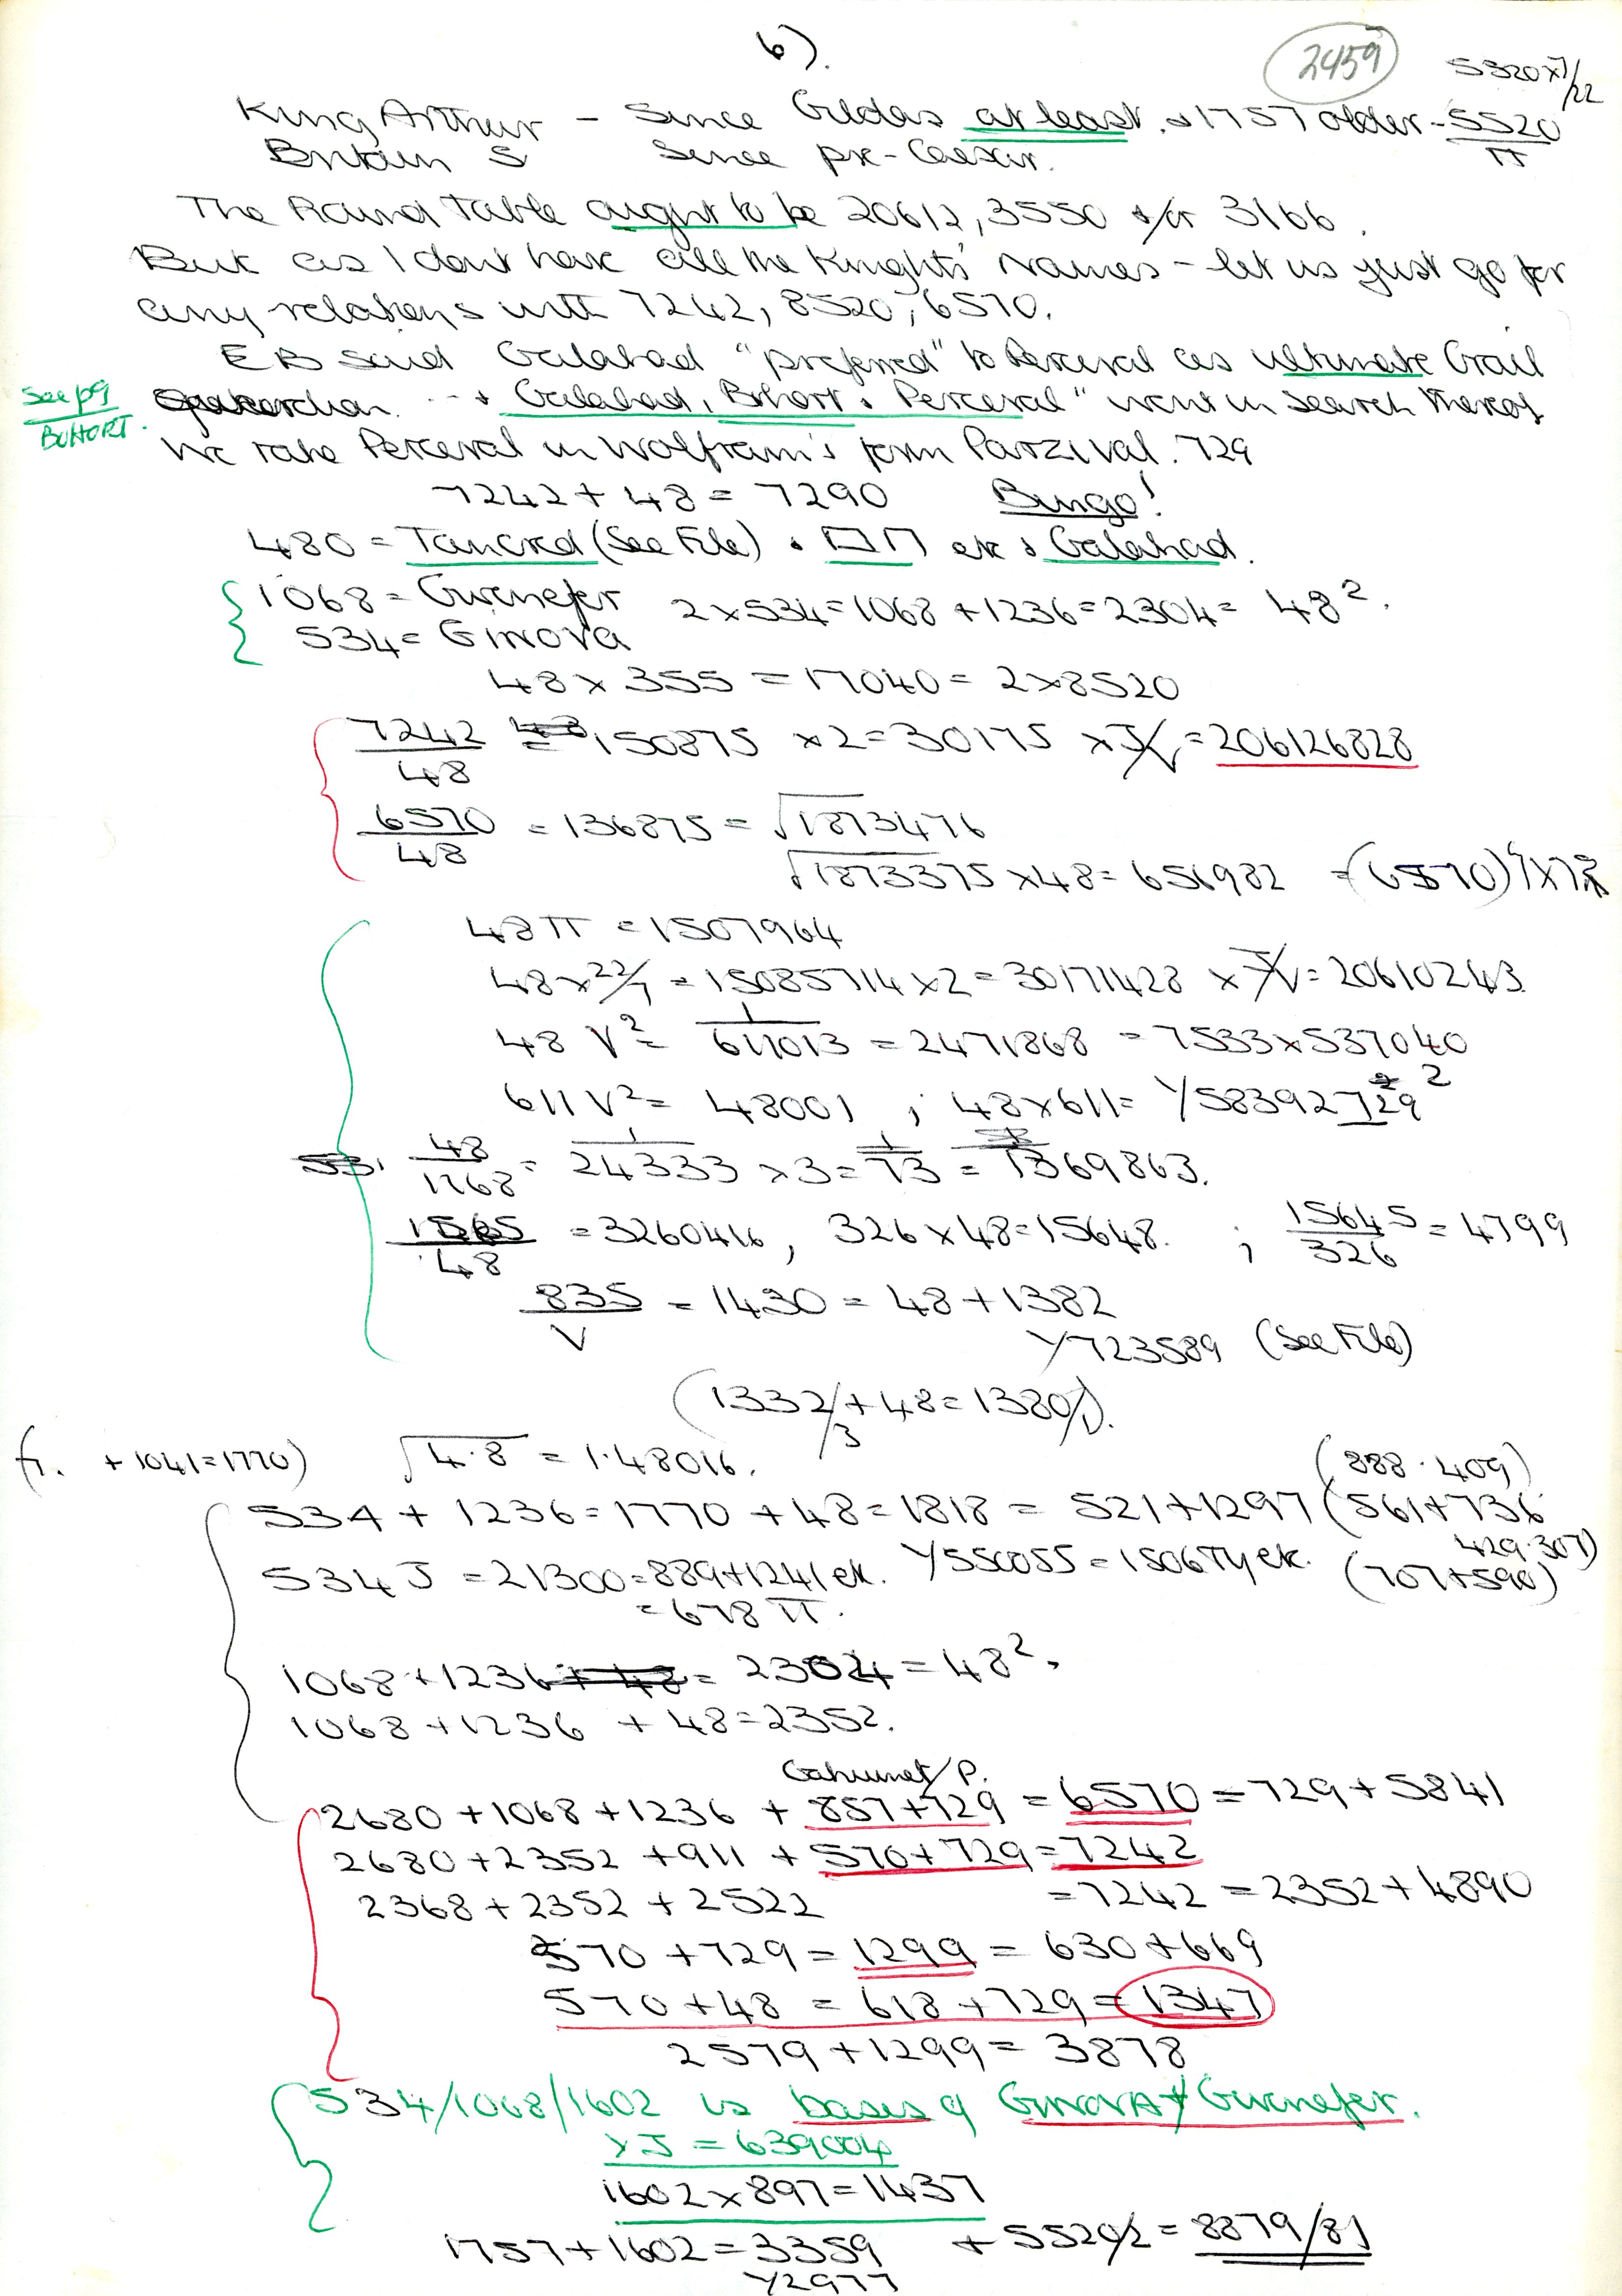 6).
2459
5520x7/22
King Arthur - Since Gildas at least. & 1757 older - 5520/π
Britain S Since pre-Caesar.
The Round Table ought to be 20612, 3550 &/or 3166.
But as I dont have all the Knights' Names - let us just go for
any relations with 7242, 8520, 6570.
EB said Galahad "preferred" to Perceval as ultimate Grail
See p9
BOHORT.
Galahad, Bohort & Perceval" went in search thereof
We take Perceval in Wolfram's form Parzival. 729
7242 + 48 = 7290 Bingo!
480 = Tancred (See File) & etc & Galahad.
1068 = Gwenefer 2x534=1068+1236=2304= 48².
534 = Ginova
48 x 355 = 17040 = 2x8520
7242/48 = 150875 x2=30175 xJ/V=206126828
6570/48 = 136875 = √1873476
√1873375 x48= 656982
48π = 1507964
48x22/7 = 15085714x2=30171428 xJ/V=20610243
48 V² = 1/617013 = 2471868 = 7533x537040
611V² = 48001 ; 48x611= Y58392729²
48/1168 = 1/24333 x3= 1/73 = 1369863.
1565/48 = 3260416, 326x48=15648. ; 15645/326 = 4799
835/V = 1430 = 48+1382
Y723589 (See File)
(1332/3 + 48 = 1380/1).
+1041=1770) √4.8 = 1.48016.
(888.409)
534 + 1236=1770 +48=1818 = 521+1297 (561+736
429.307)
534J = 21300=889+1241 etc. Y550055=1506Ty etc. (707+590)
= 678π.
1068+1236 = 2304 = 48².
1068+1236 +48=2352.
Gahumet/P.
2680+1068+1236 + 857+729 = 6570 = 729+5841
2680+2352+911 + 570+729=7242
2368+2352+2522 =7242 =2352+4890
570+729 = 1299 = 630+669
570+48 = 618+729=1347
2579+1299=3878
534/1068/1602 is bases of GINOVA & Gwenefer.
xJ = 639004
1602x897=1437
1757+1602=3359 + 5520/2 = 8879/81
Y2977